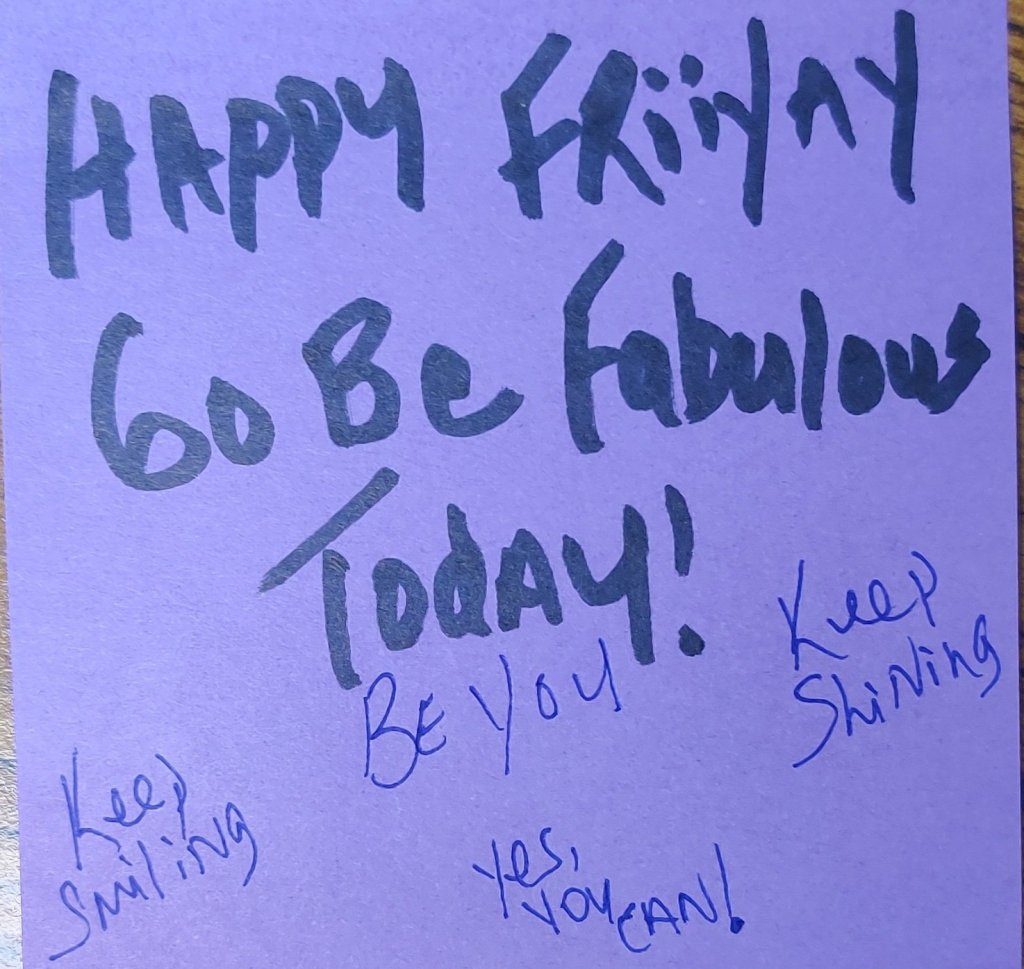 HAPPY FRiiyAY
Go Be Fabulous
TodAY!
BE YOU
Keep
ShiNing
Keep
Smiling
Yes,
YOU CAN!